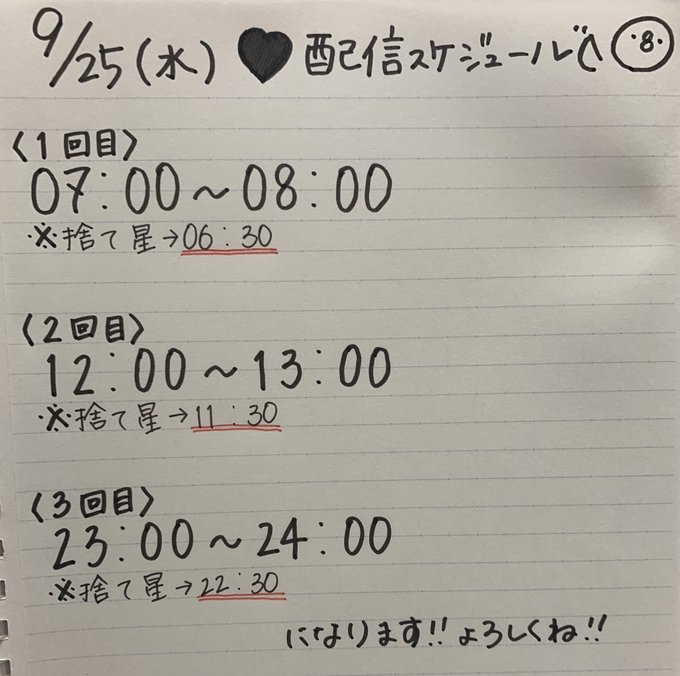 9/25(水)♥配信スケジュール
〈1回目〉
07:00~08:00
※捨て星→06:30
〈2回目〉
12:00~13:00
※捨て星→11:30
〈3回目〉
23:00~24:00
※捨て星→22:30
になります!!よろしくね!!